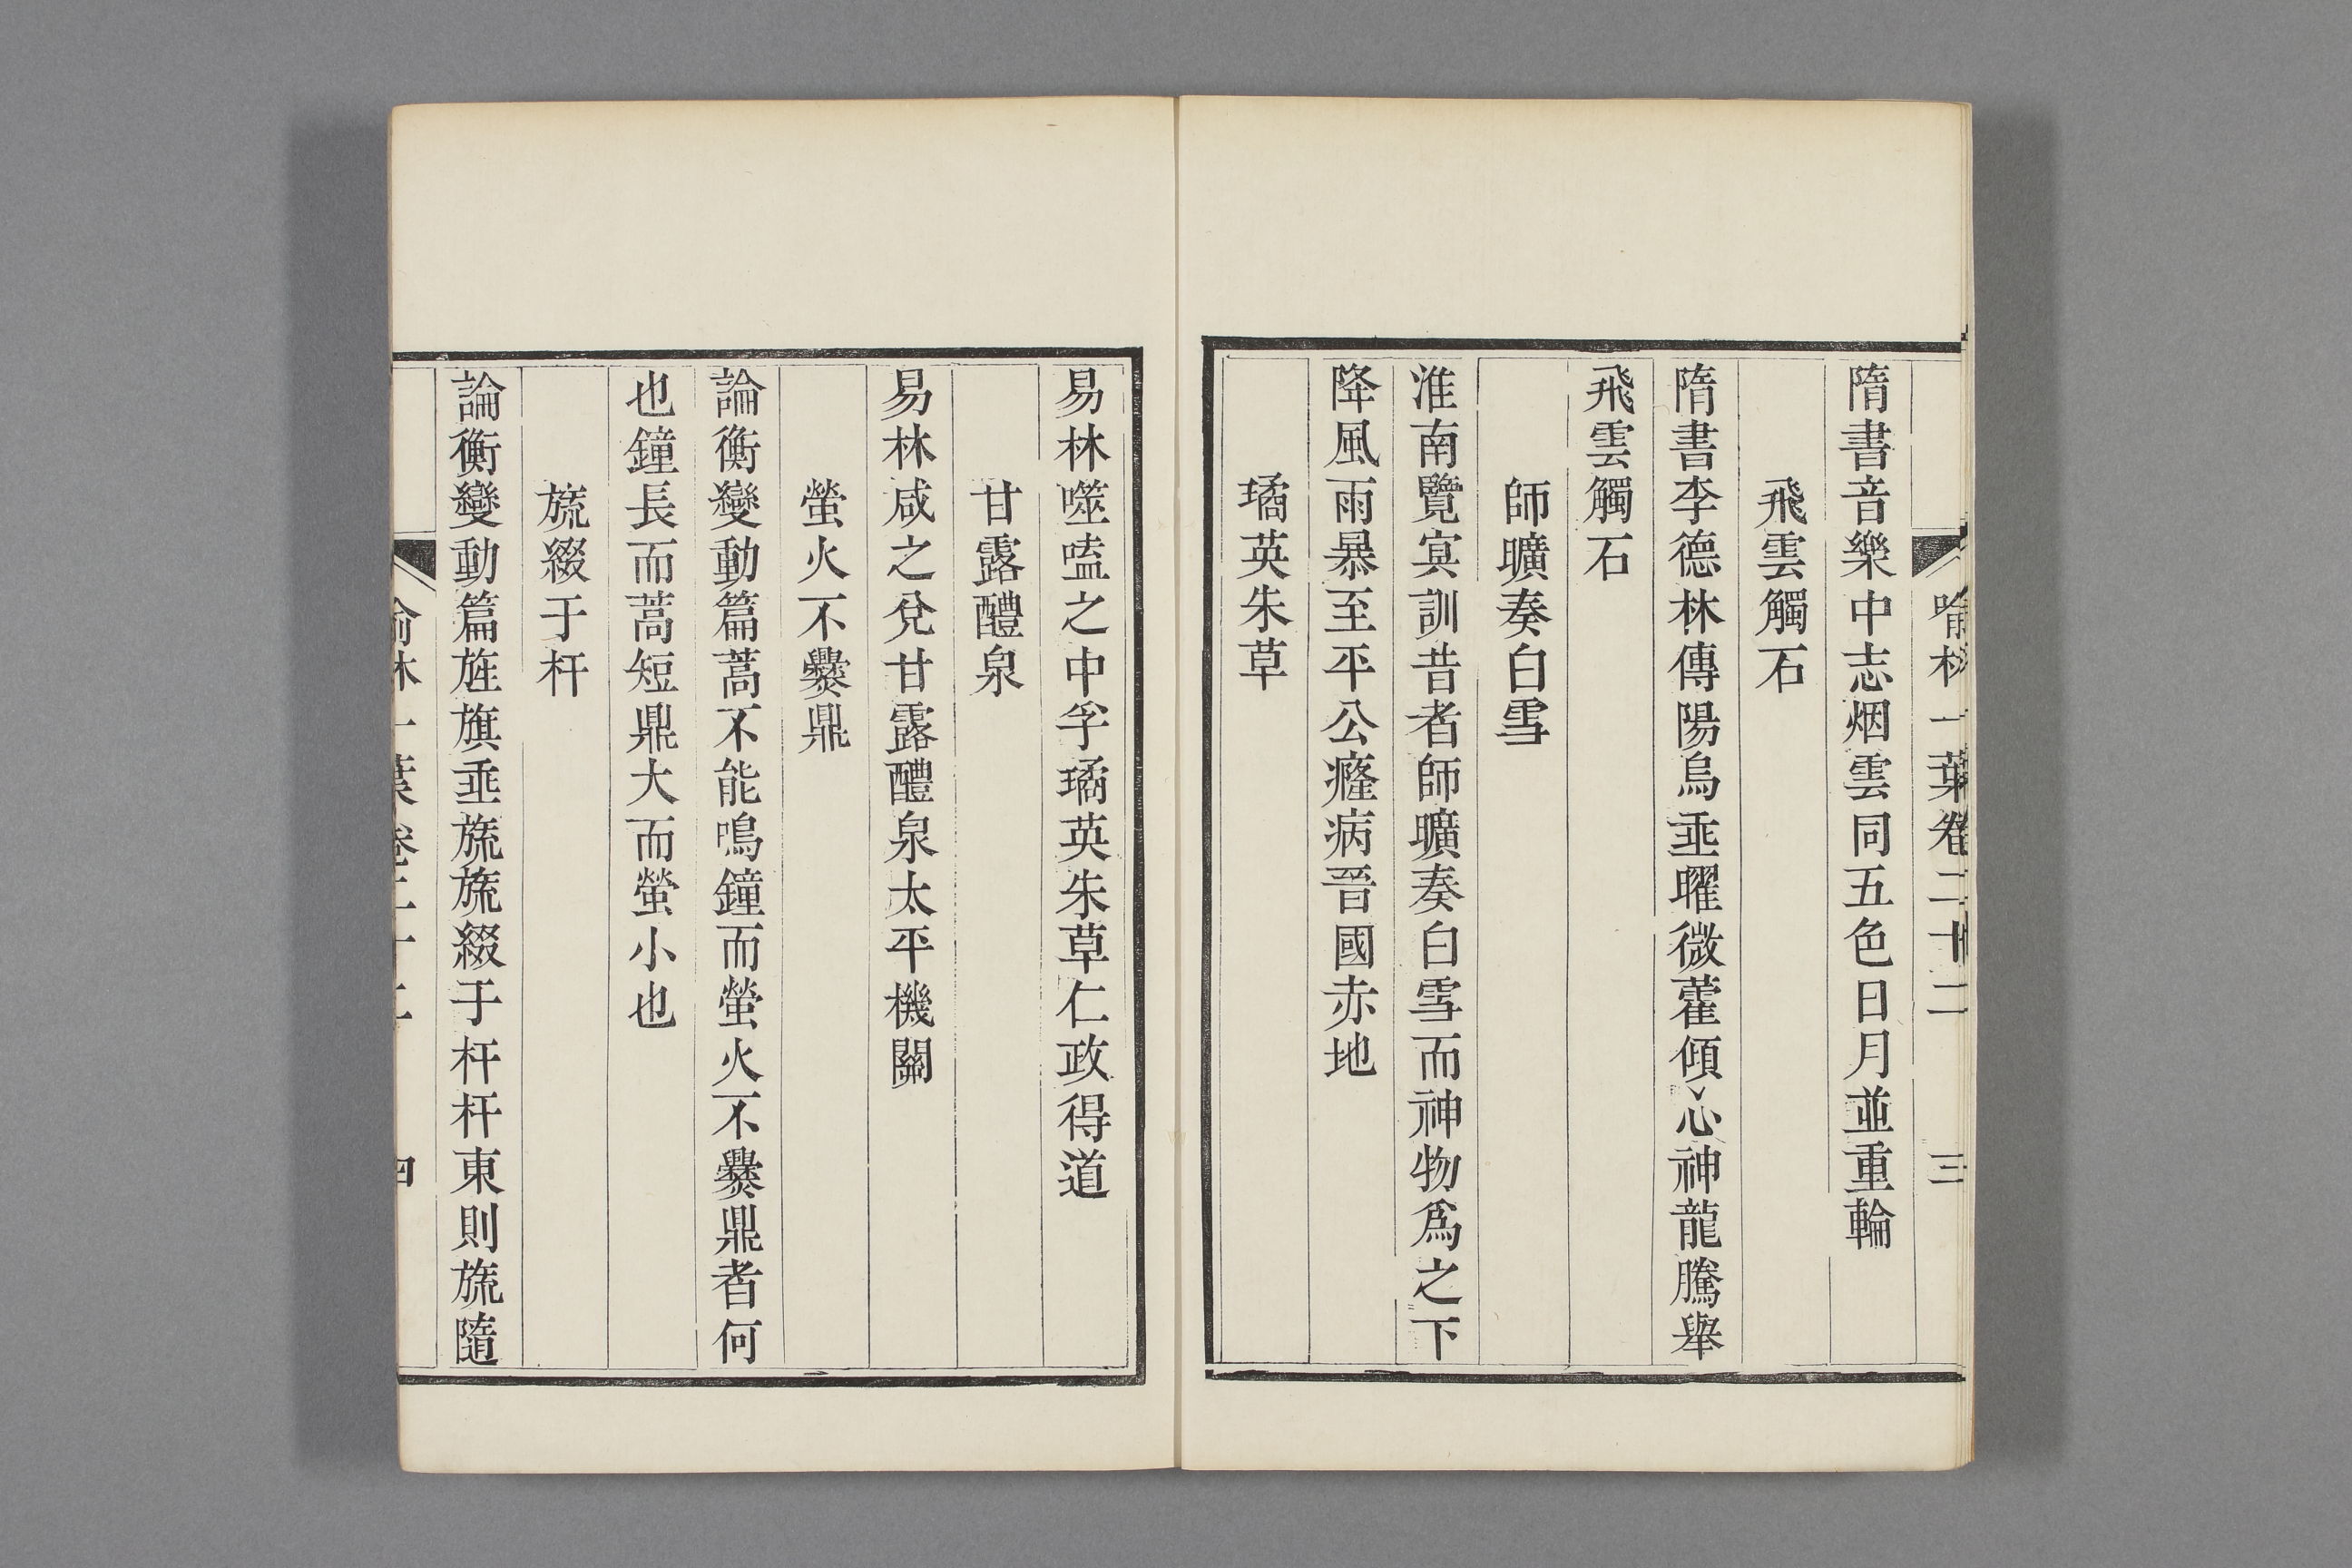 喻林一葉卷二十二 三
隋書音樂中志烟雲同五色日月並重輪
飛雲觸石
隋書李德林傳陽烏垂曜微藿傾心神龍騰舉
飛雲觸石
師曠奏白雪
淮南覽冥訓昔者師曠奏白雪而神物爲之下
降風雨暴至平公癃病晉國赤地
璚英朱草
易林噬嗑之中孚璚英朱草仁政得道
甘露醴泉
易林咸之兌甘露醴泉太平機關
螢火不爨鼎
論衡變動篇蒿不能鳴鐘而螢火不爨鼎者何
也鐘長而蒿短鼎大而螢小也
旒綴于杆
論衡變動篇旌旗垂旒旒綴于杆杆東則旒隨
喻林一葉卷二十二 四